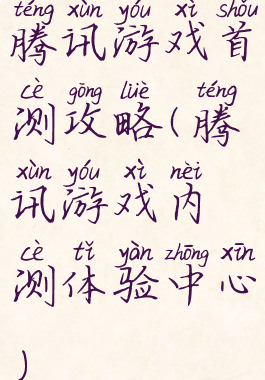 téng xùn yóu xì shǒu
腾讯游戏首
cè gōng lüè téng
测攻略(腾
xùn yóu xì nèi
讯游戏内
cè tǐ yàn zhōng xīn
测体验中心
)